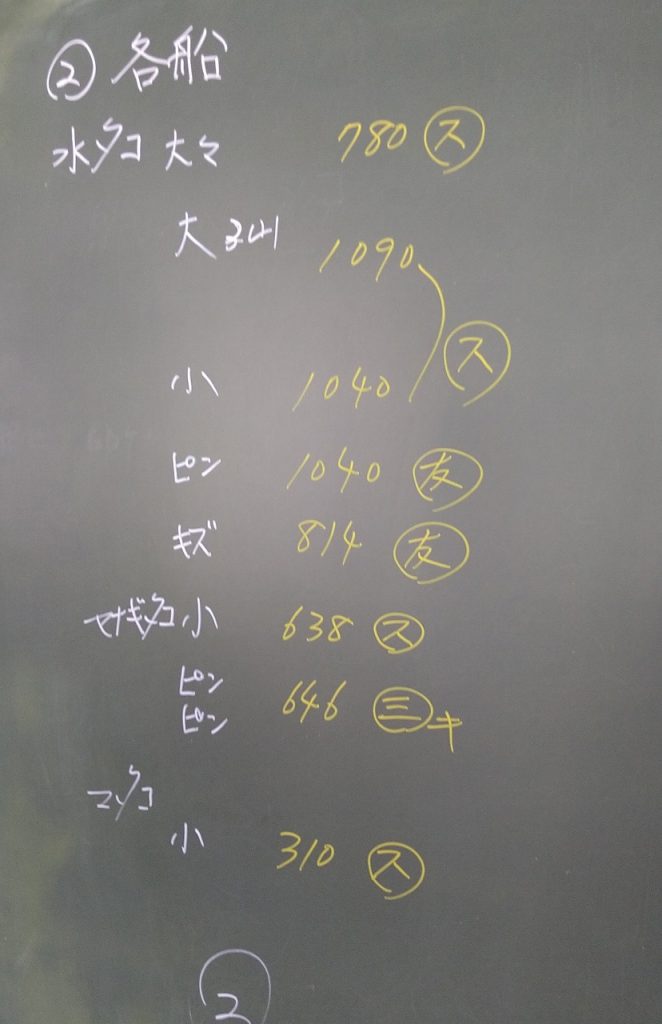 ② 各船
水ダコ 大々 780 ㋜
大 1090
㋜
小 1040
ピン 1040 友
キズ 814 友
ヤナギダコ 小 638 ㋜
ピン
ピン 646 三 キ
マダコ
小 310 ㋜
②